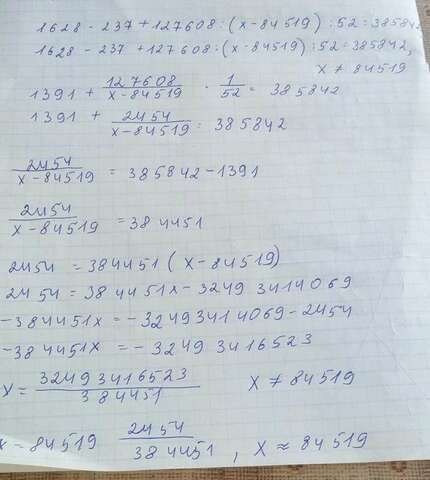 1628 - 237 + 127608 : (x - 84519) : 52 = 385842
1628 - 237 + 127608 : (x - 84519) : 52 = 385842,
x ≠ 84519
1391 + 127608/x-84519 · 1/52 = 385842
1391 + 2454/x-84519 = 385842
2454/x-84519 = 385842 - 1391
2454/x-84519 = 384451
2454 = 384451 (x - 84519)
2454 = 384451x - 32493414069
-384451x = -32493414069 - 2454
-384451x = - 32493416523
x = 32493416523/384451 x ≠ 84519
x - 84519 2454/384451, x ≈ 84519